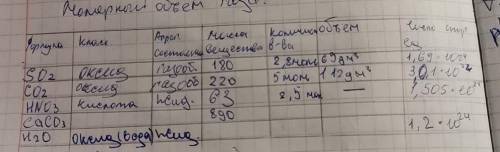 Молярный объем газа.
Формула Класс Агрег состояние Масса вещества количес в-ва объем число стр ед
SO2 оксид газооб 180 2,8моль 69дм³
CO2 оксид газооб 220 5моль 112дм³ 3,01·10²⁴
HNO3 кислота жид. 63 2,5 мол — 1,505·10²⁴
CaCO3 890
H2O оксид(вода) жид. 1,2·10²⁴